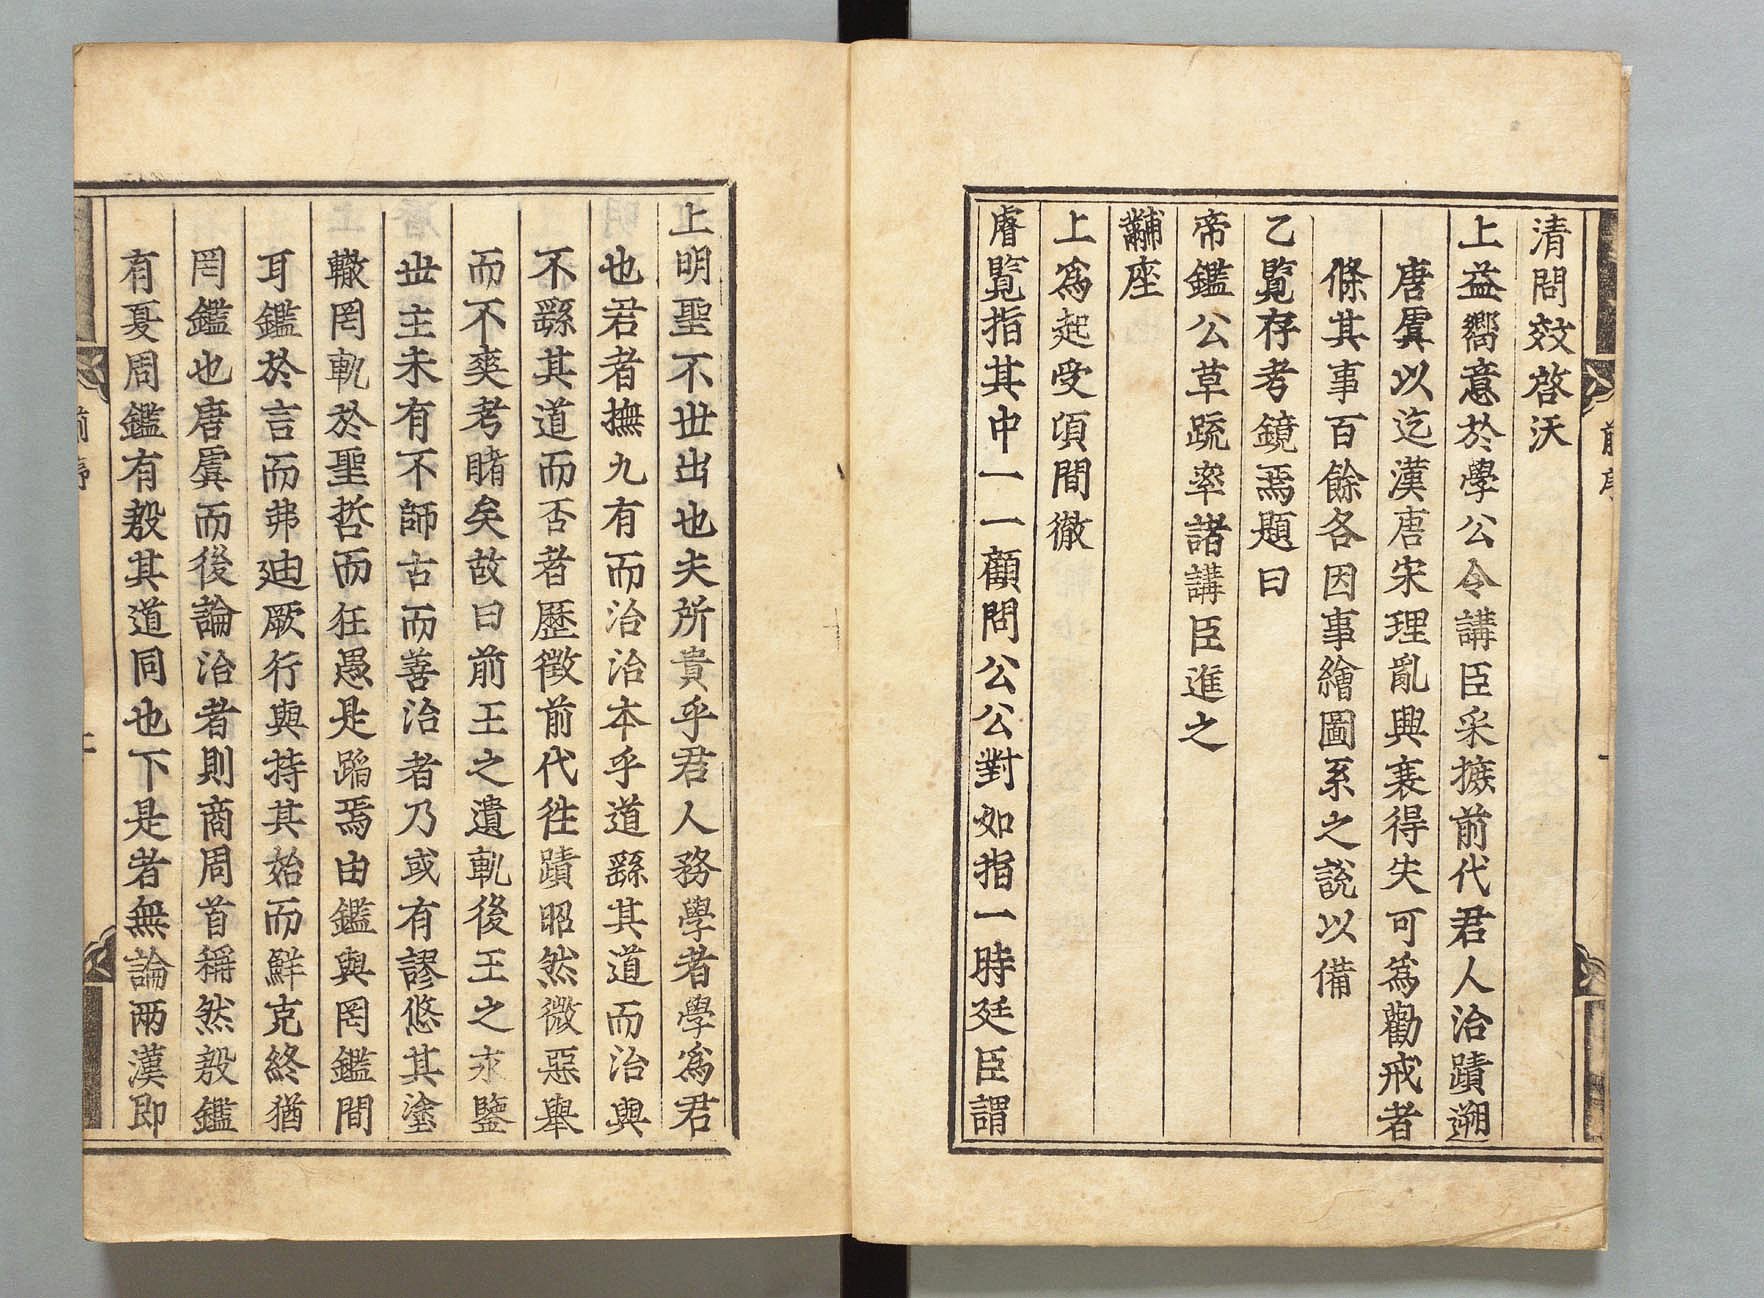 清問效啓沃
上益嚮意於學公令講臣采摭前代君人治蹟遡
唐虞以迄漢唐宋理亂興衰得失可爲勸戒者
條其事百餘各因事繪圖系之說以備
乙覽存考鏡焉題曰
帝鑑公草疏率諸講臣進之
黼座
上爲起受頃間徹
睿覽指其中一一顧問公公對如指一時廷臣謂
上明聖不世出也夫所貴乎君人務學者學爲君
也君者撫九有而治治本乎道繇其道而治與
不繇其道而否者歷徵前代徃蹟昭然微惡舉
而不爽考睹矣故曰前王之遺軌後王之永鑒
世主未有不師古而善治者乃或有謬悠其塗
轍罔軌於聖哲而狂愚是蹈焉由鑑與罔鑑間
耳鑑於言而弗迪厥行與持其始而鮮克終猶
罔鑑也唐虞而後論治者則商周首稱然殷鑑
有夏周鑑有殷其道同也下是者無論兩漢即
前序